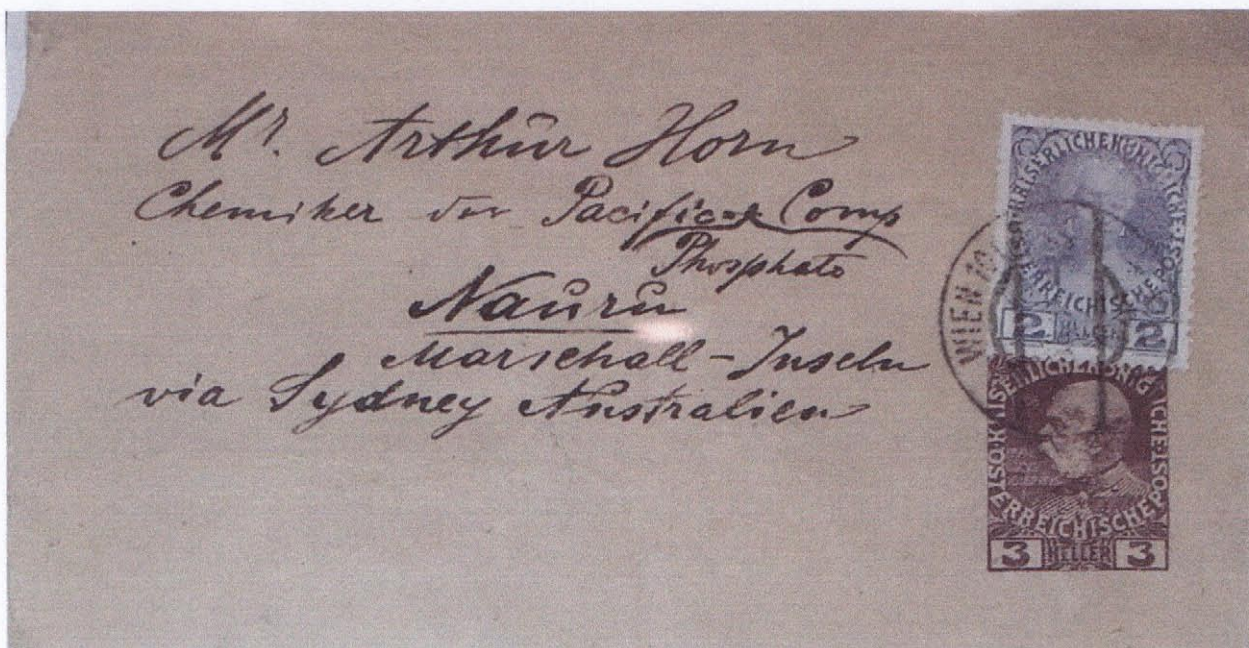 Mr. Arthur Horn
Chemiker der Pacific Comp
Phosphate
Nauru
Marschall-Inseln
via Sydney Australien
KAISERLICHEKÖNIGLICHE
ÖSTERREICHISCHE POST
2 HELLER 2
WIEN
KAISERLICHEKÖNIGLICHE
ÖSTERREICHISCHE POST
3 HELLER 3